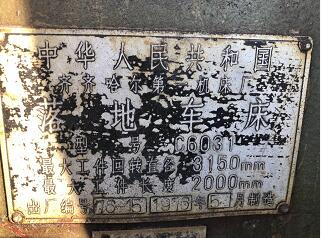 中华人民共和国
齐齐哈尔第一机床厂
落地车床
型号 C6031
最大工件回转直径 3150mm
最大工件长度 2000mm
出厂编号 年 月制造